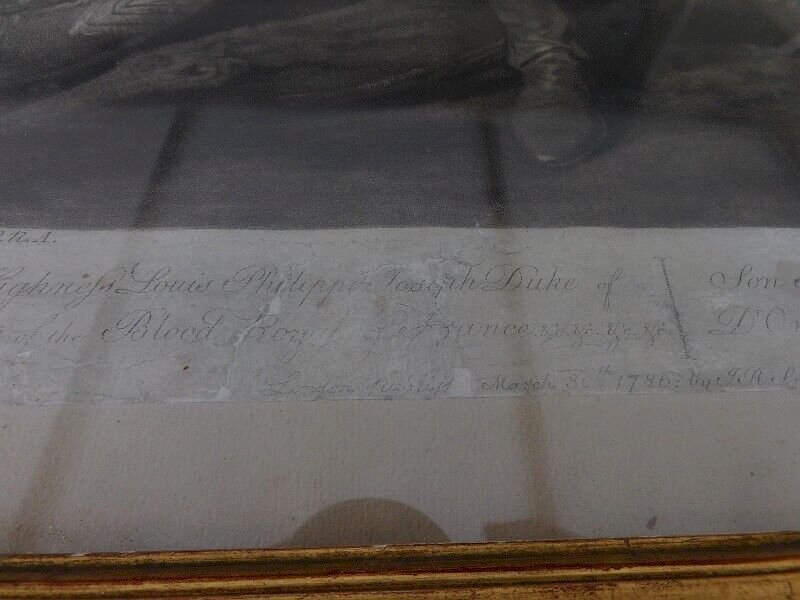 P.R.A.
Highness Louis Philippe Joseph Duke of
Son
of the Blood Royal of France &c. &c. &c. &c.
D'O
London Publish'd March 30th 1786 by J.R. S